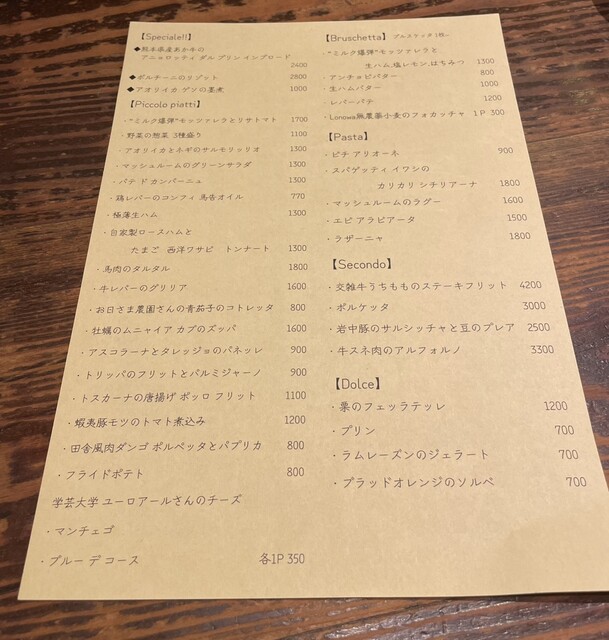 【Speciale!!】
◆熊本県産あか牛の
アニョロッティ ダル プリン インブロード
2400
◆ポルチーニのリゾット 2800
◆アオリイカ ゲソの墨煮 1000
【Piccolo piatti】
・"ミルク爆弾"モッツァレラとリサトマト 1700
・野菜の惣菜 3種盛り 1100
・アオリイカとネギのサルモリッリオ 1300
・マッシュルームのグリーンサラダ 1300
・パテ ド カンパーニュ 1300
・鶏レバーのコンフィ 馬告オイル 770
・極薄生ハム 1300
・自家製ロースハムと
たまご 西洋ワサビ トンナート 1300
・馬肉のタルタル 1800
・牛レバーのグリリア 1600
・お日さま農園さんの青茄子のコトレッタ 800
・牡蠣のムニャイア カブのズッパ 1600
・アスコラーナとタレッジョのパネッレ 900
・トリッパのフリットとパルミジャーノ 900
・トスカーナの唐揚げ ポッロ フリット 1100
・蝦夷豚モツのトマト煮込み 1200
・田舎風肉ダンゴ ポルペッタとパプリカ 800
・フライドポテト 800
学芸大学 ユーロアールさんのチーズ
・マンチェゴ
・ブルー デ コース 各1P 350
【Bruschetta】 ブルスケッタ 1枚~
・"ミルク爆弾"モッツァレラと
生ハム,塩レモン,はちみつ 1300
・アンチョビバター 800
・生ハムバター 1000
・レバーパテ 1200
・Lonowa無農薬小麦のフォカッチャ 1P 300
【Pasta】
・ピチ アリオーネ 900
・スパゲッティ イワシの
カリカリ シチリアーナ 1800
・マッシュルームのラグー 1600
・エビ アラビアータ 1500
・ラザーニャ 1800
【Secondo】
・交雑牛うちもものステーキフリット 4200
・ポルケッタ 3000
・岩中豚のサルシッチャと豆のプレア 2500
・牛スネ肉のアルフォルノ 3300
【Dolce】
・栗のフェッラテッレ 1200
・プリン 700
・ラムレーズンのジェラート 700
・ブラッドオレンジのソルベ 700